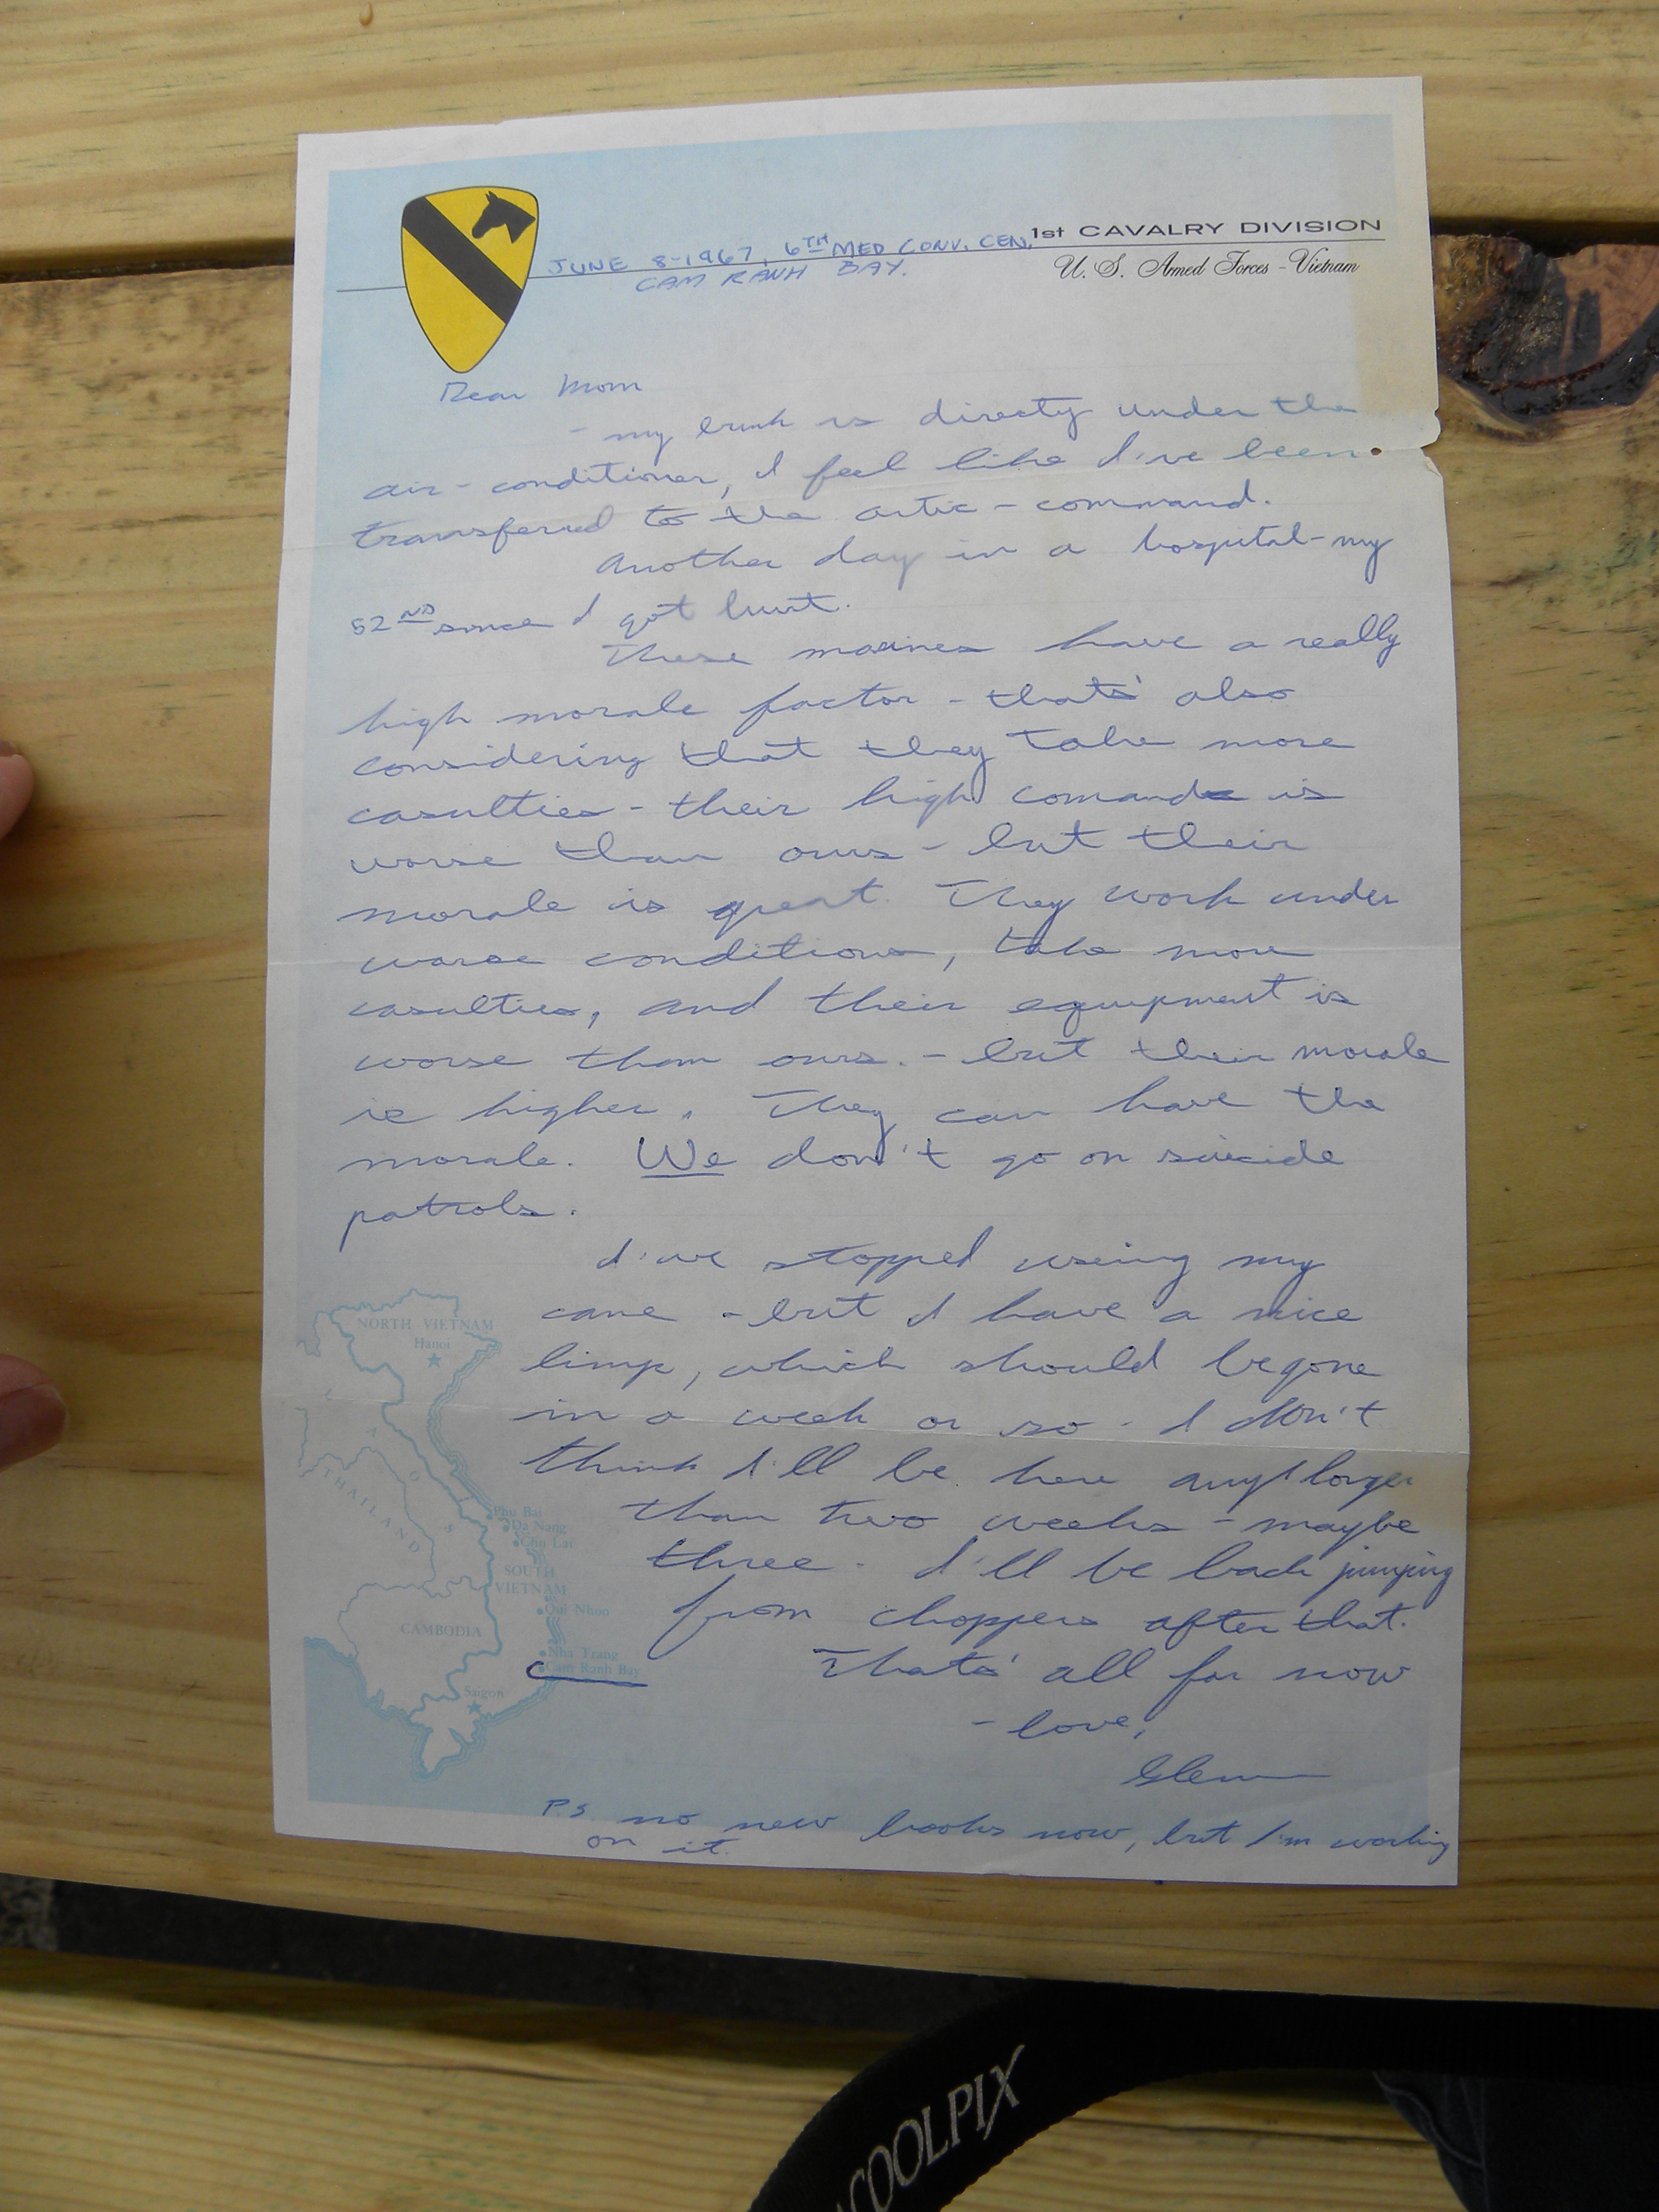 1st CAVALRY DIVISION
U. S. Armed Forces - Vietnam
JUNE 8-1967, 6TH MED CONV. CEN.
CAM RANH BAY.
Dear Mom
- my bunk is directy under the
air-conditioner, I feel like I've been
transferred to the artic-command.
Another day in a hospital-my
52ND since I got hurt.
These marines have a really
high morale factor - that's also
considering that they take more
casulties - their high comand is
worse than ours - but their
morale is great. They work under
worse conditions, take more
casulties, and their equipment is
worse than ours. - but their morale
is higher. They can have the
morale. We don't go on suicide
patrols.
I've stopped useing my
cane - but I have a nice
limp, which should be gone
in a week or so - I don't
think I'll be here any longer
than two weeks - maybe
three - I'll be back jumping
from choppers after that.
That's all for now
- love,
Glenn
PS no new books now, but I'm working
on it.
NORTH VIETNAM
Hanoi
LAOS
THAILAND
Phu Bai
Da Nang
Chu Lai
SOUTH
VIETNAM
Qui Nhon
CAMBODIA
Nha Trang
Cam Ranh Bay
Saigon
COOLPIX